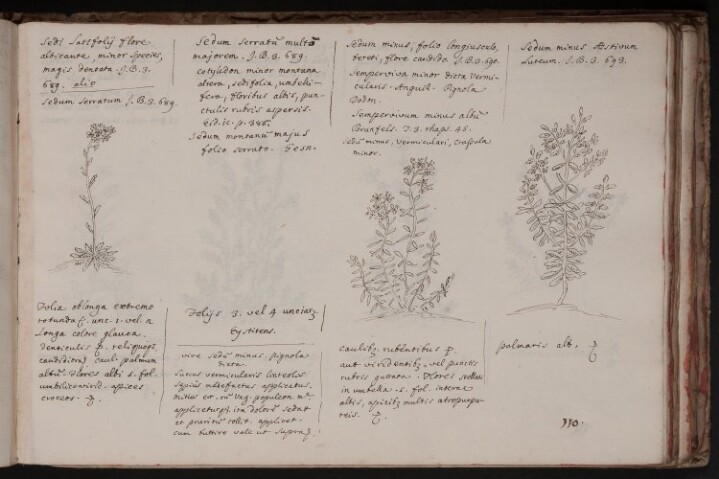 Sedi Latifolij flore
albicante, minor species,
magis dentata J.B.3.
689. alio
Sedum Serratum J.B.3. 689.
Folia oblonga extremo
rotunda unc. 1. vel. 2
Longa colore glauca.
denticulis reliquo
caul. palmum
altũ flores albi 5. fol.
umbilico virid. apices
croceos.
Sedum Serratũ multo
majorem. J.B.3. 689.
cotyledon minor montana
altera, sedi folio, umbeli-
fera, floribus albis, pun-
ctulis rubris aspersis.
Eid. ic. p. 385.
Sedum montanũ majus
folio serrato. Gesn.
Folijs 3. vel 4 unciar
Eystitens.
vire sedũ minus. Pignola
dicta.
Sucus vermicularis linteolis
sæpius madefactus applicatus.
mitius est. cũ Ung. populeon
ita dolorẽ sedat
et pruritũ tollit. applicet.
cum butiro vale ut supra
Sedum minus, folio longiusculo,
tereti, flore candido J.B.3. 690.
Sempervivа minor dicta Vermi-
cularis. Anguill. Pignola
Dodon.
Sempervivum minus albũ
Brunfels. T.3. rhaps. 45.
Sedũ minus, vermiculari, Crassula
minor.
caulib rubentibus
aut viridentib, vel punctis
rubris guttata. Flores stellati
in umbella. 5. fol. interne
albis, apicib multis atropurpu-
reis.
Sedum minus Æstivum
Luteum. J.B.3. 693.
palmaris alt.
110.